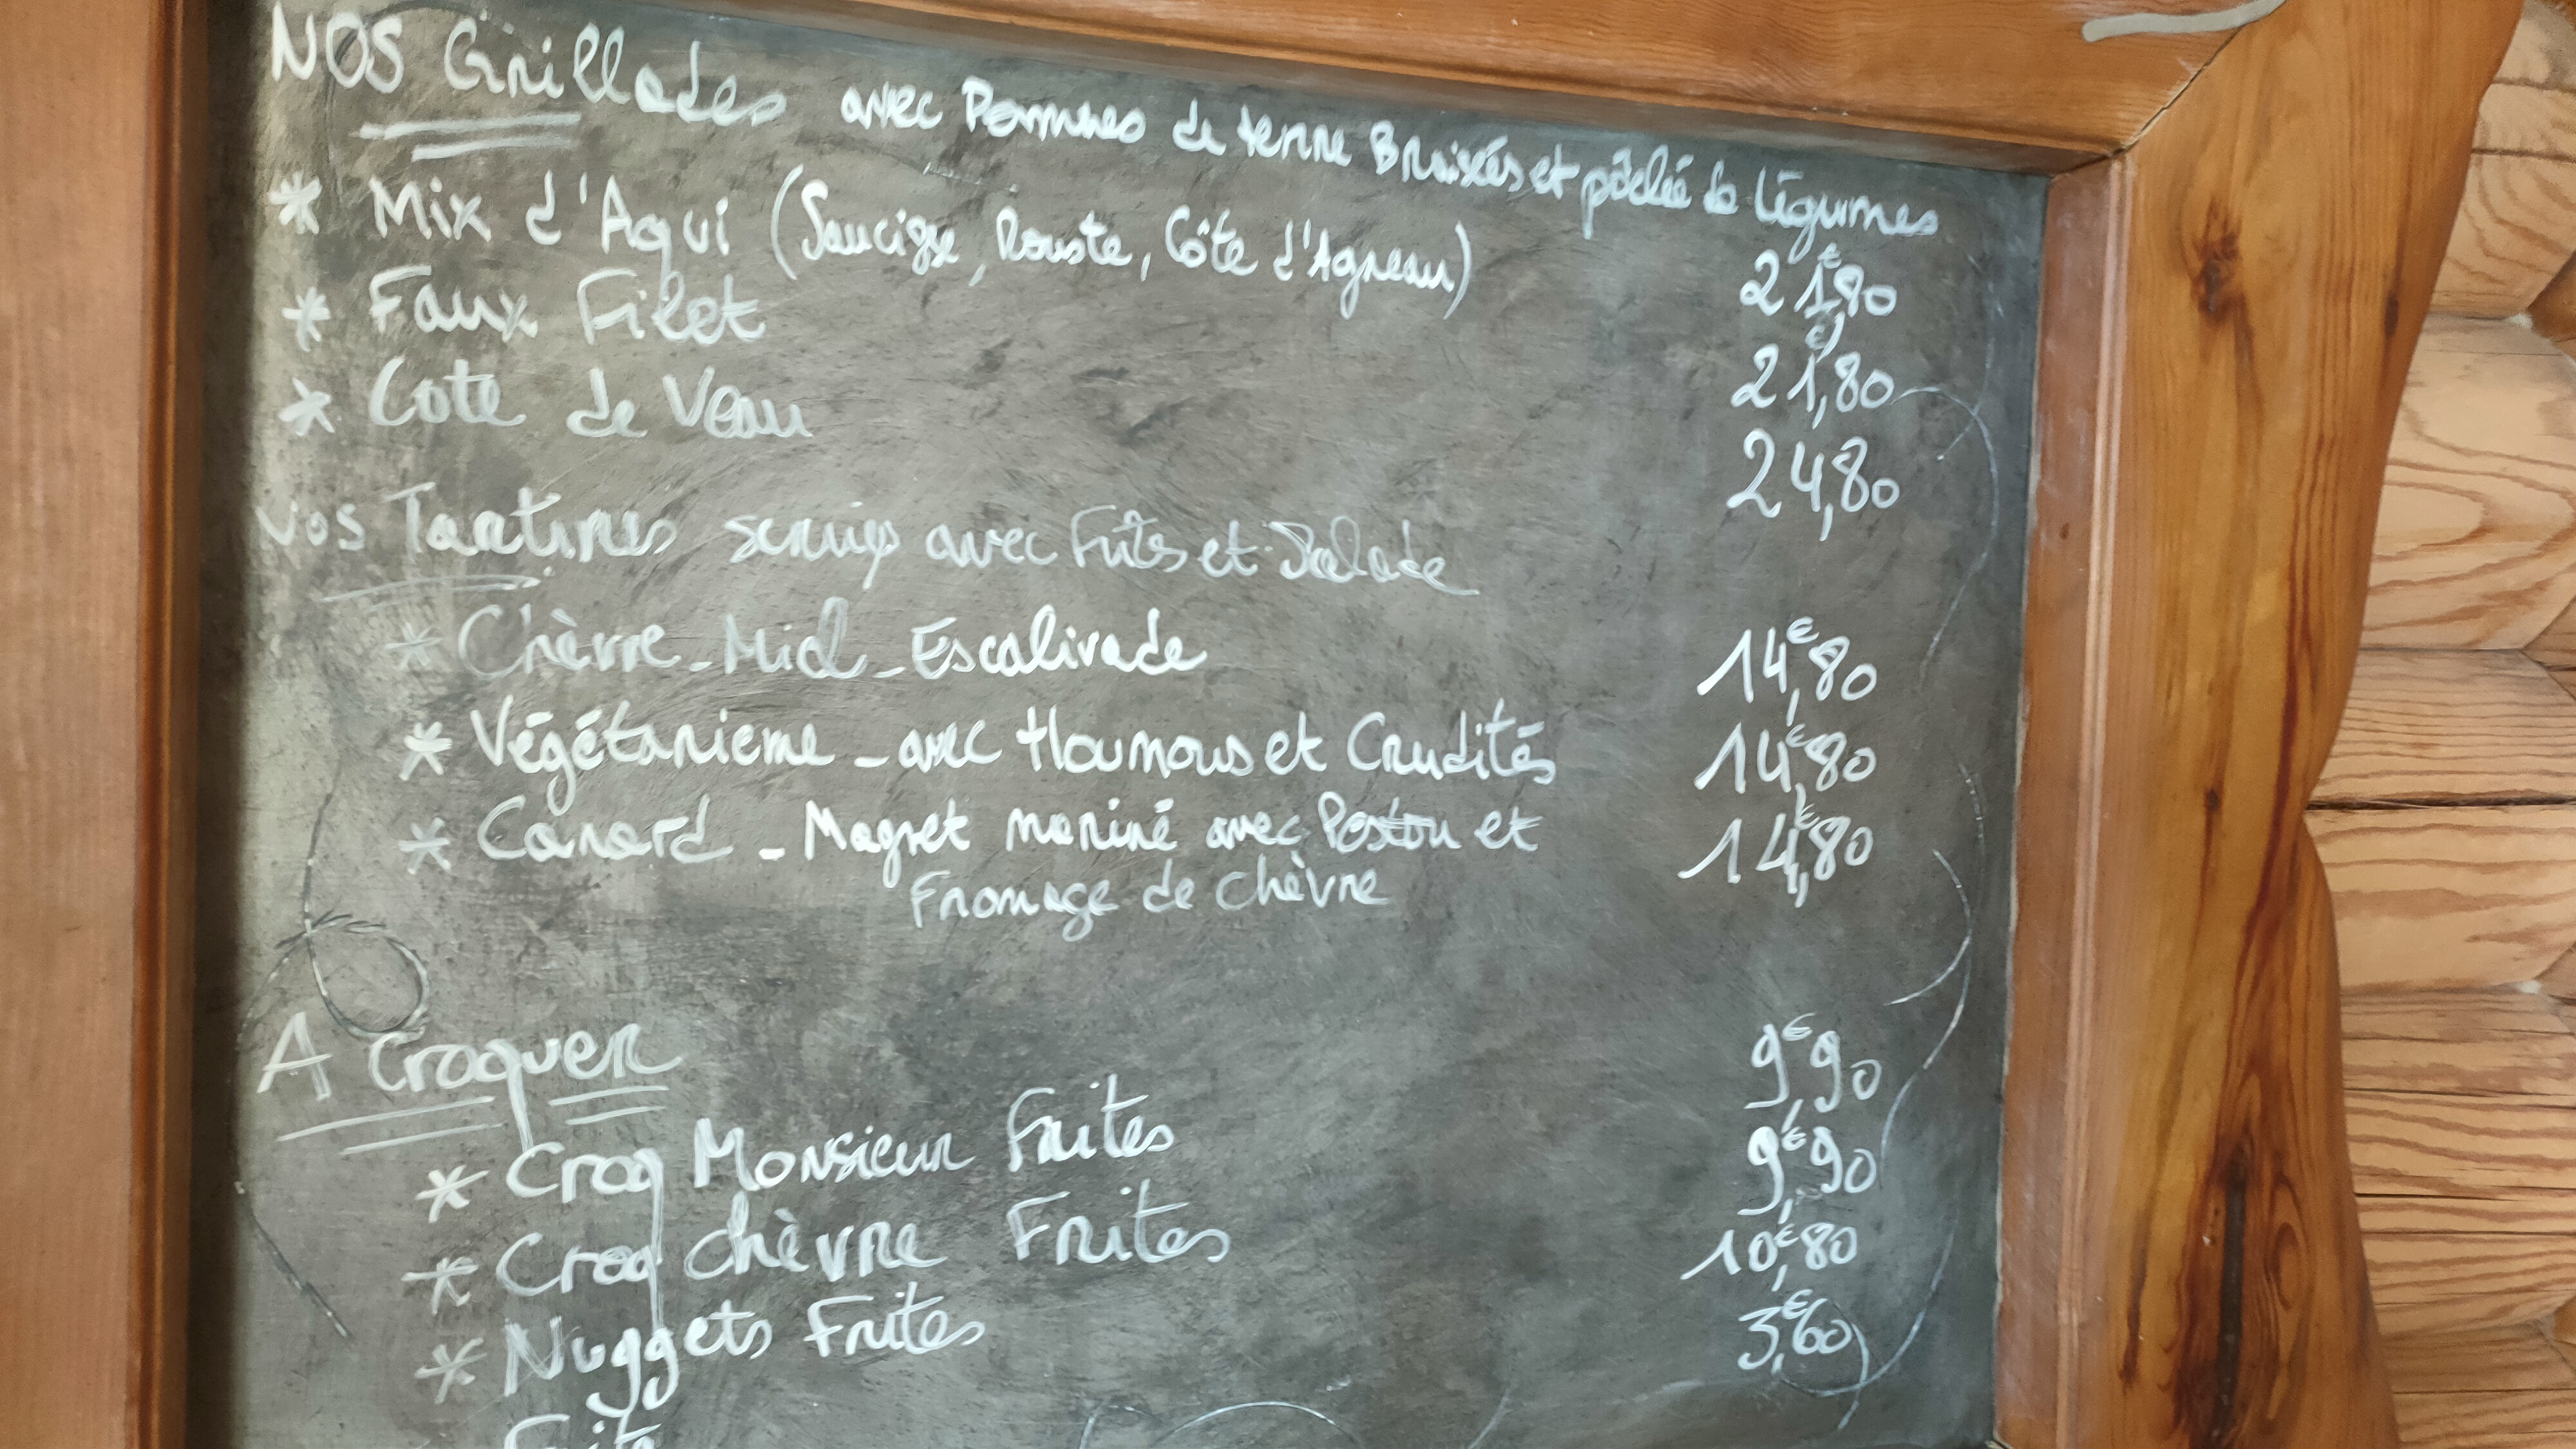 NOS Grillades avec Pommes de terre Braisés et pôelée de Légumes
* Mix d'Aqui (Saucisse, Rouste, Côte d'Agneau) 21€,80
* Faux Filet 21€,80
* Cote de Veau 24,80
Nos Tartines servies avec Frites et Salade
* Chèvre - Miel - Escalivade 14€,80
* Végétarienne - avec Houmous et Crudités 14€,80
* Canard - Magret mariné avec et 14€,80
Fromage de chèvre
A Croquer
* Croq Monsieur Frites 9€,90
* Croq chèvre Frites 9€,90
* Nuggets Frites 10€,80
Frite 3€,60